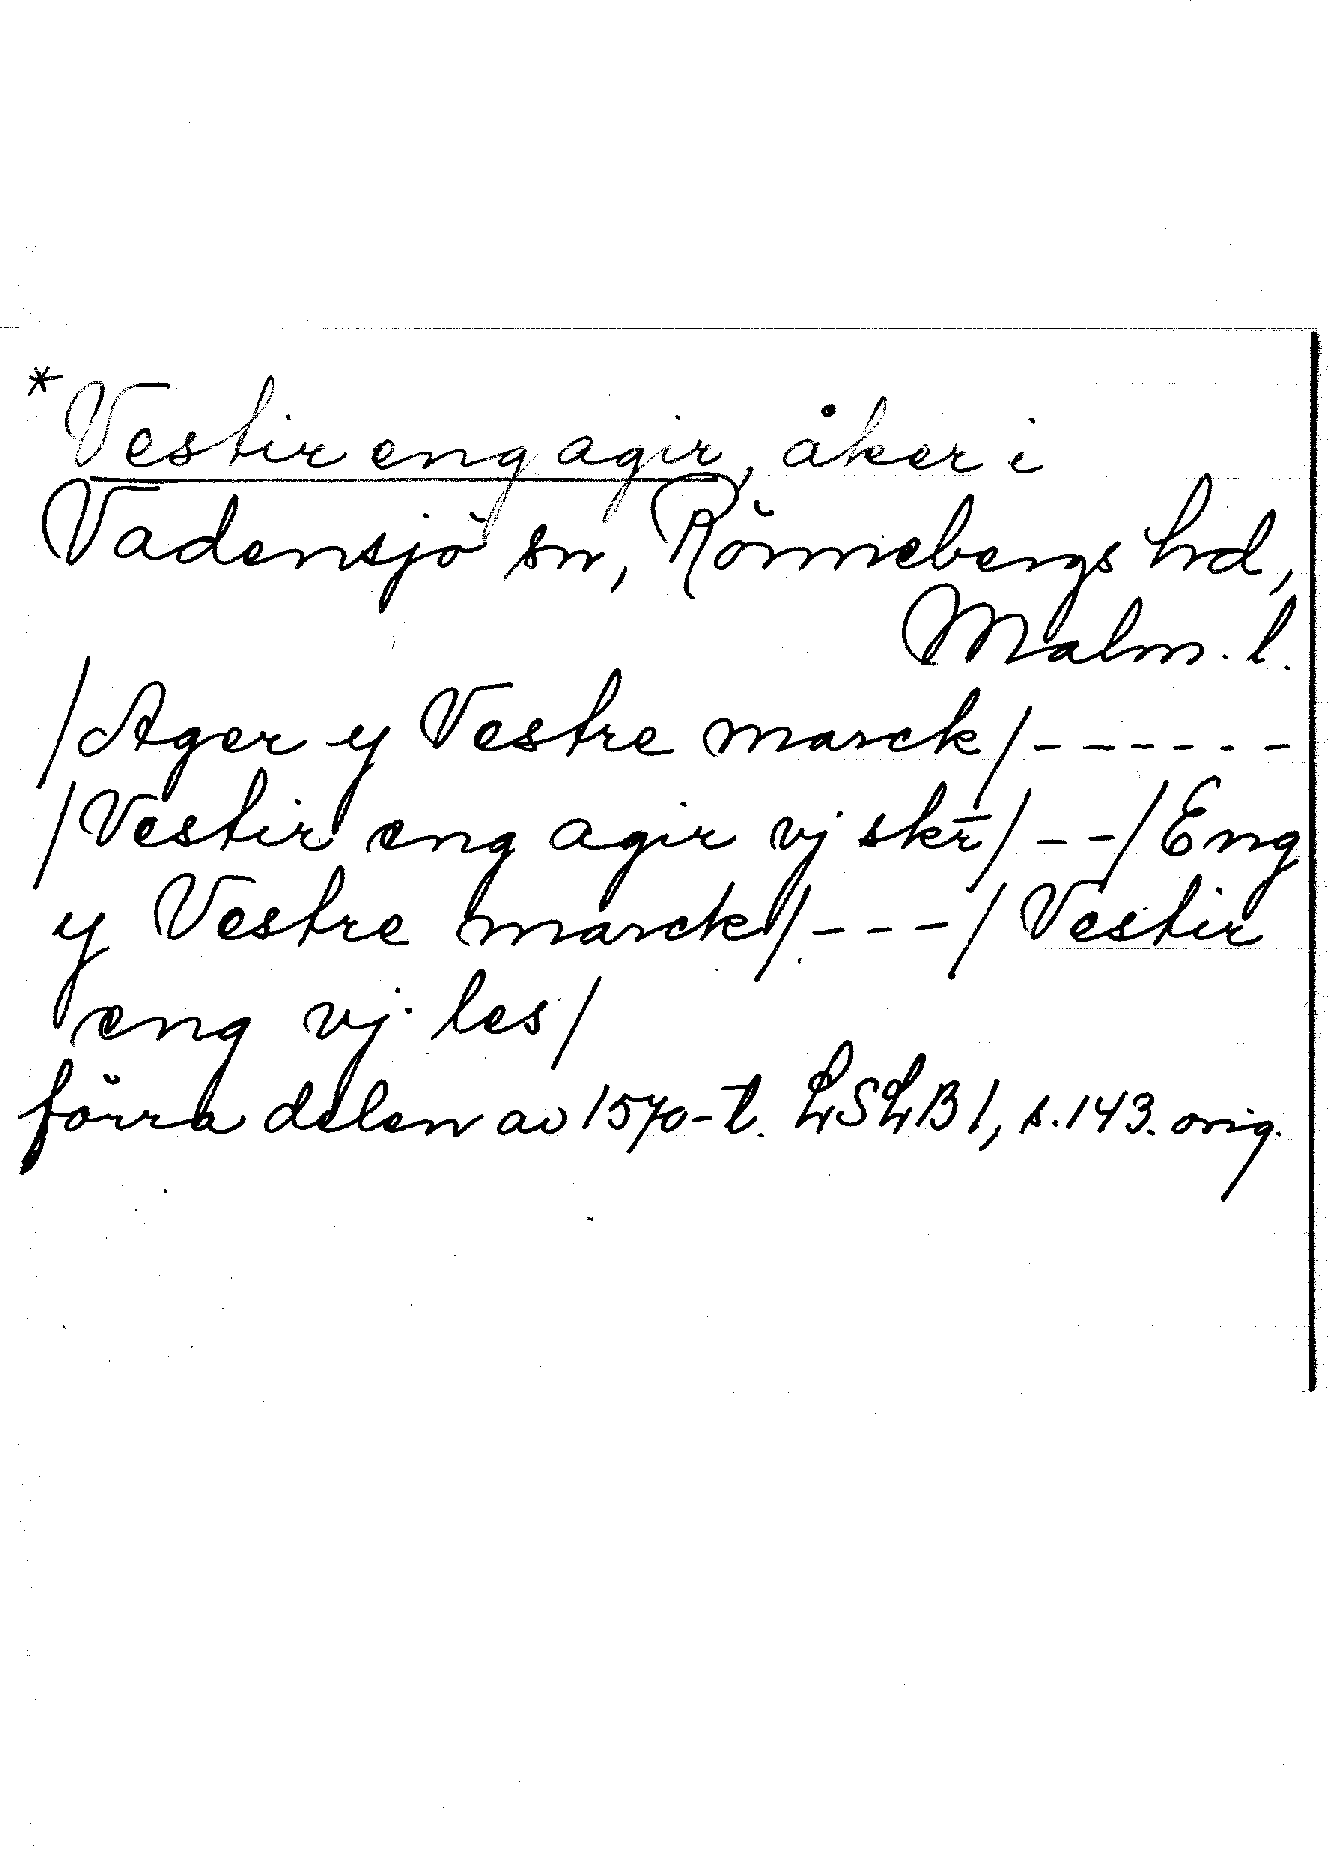 *Vestir eng agir, åker i
Vadensjö sn, Rönnebergs hrd,
Malm. l.
/Ager y Vestre marck/------
/Vestir eng agir vj skr̄/--/Eng
y Vestre marck/---/Vestir
eng vj les/
förra delen av 1570-t. LSLB1, s.143. orig.